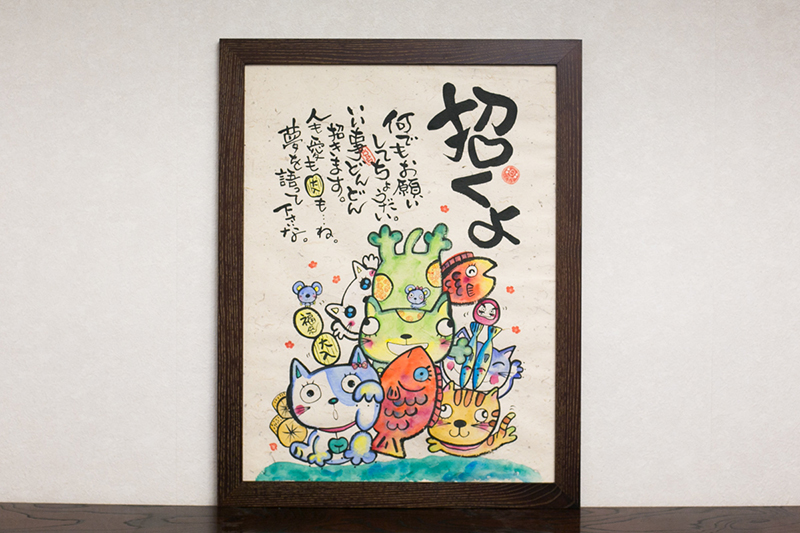 招くよ
何でもお願い
してちょうだい。
いい事どんどん
招きます。
人も愛も大入も…ね。
夢を語って下さいな。
福
大入